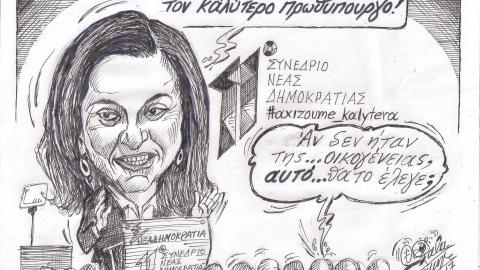 τον καλύτερο πρωθυπουργό!
ΣΥΝΕΔΡΙΟ
ΝΕΑΣ
ΔΗΜΟΚΡΑΤΙΑΣ
#axizoume_kalytera
Αν δεν ήταν
της...οικογένειας,
αυτό...θα το έλεγε;
ΝΕΑ ΔΗΜΟΚΡΑΤΙΑ
11
ΣΥΝΕΔΡΙΟ
ΝΕΑΣ
ΔΗΜΟΚΡΑΤΙΑ